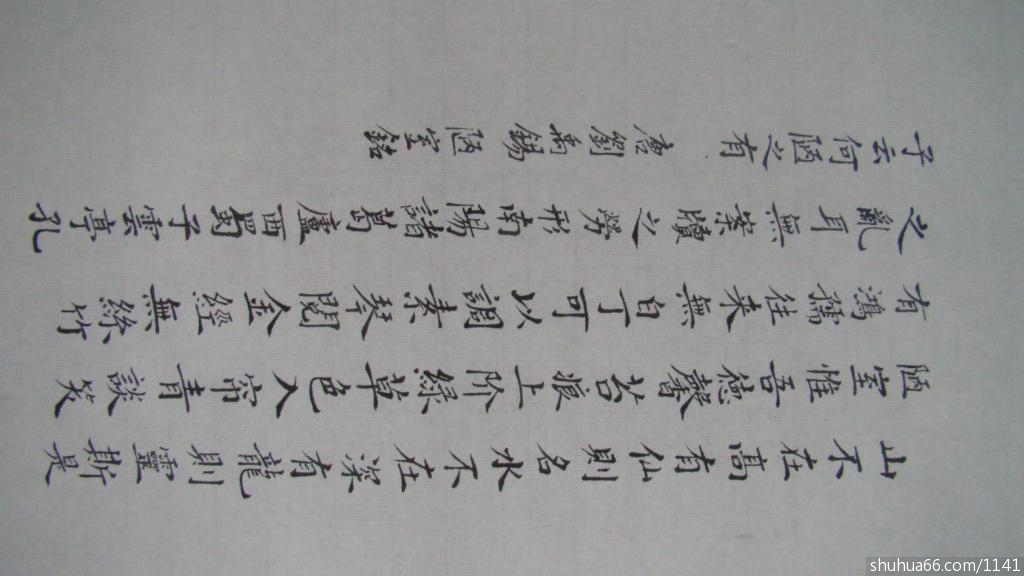 山不在高有仙則名水不在深有龍則靈斯是
陋室惟吾德馨苔痕上阶綠草色入帘青談笑
有鴻儒往来無白丁可以調素琴閱金經無絲竹
之亂耳無案牘之勞形南陽諸葛廬西蜀子雲亭孔
子云何陋之有 唐劉禹錫陋室銘
shuhua66.com/1141